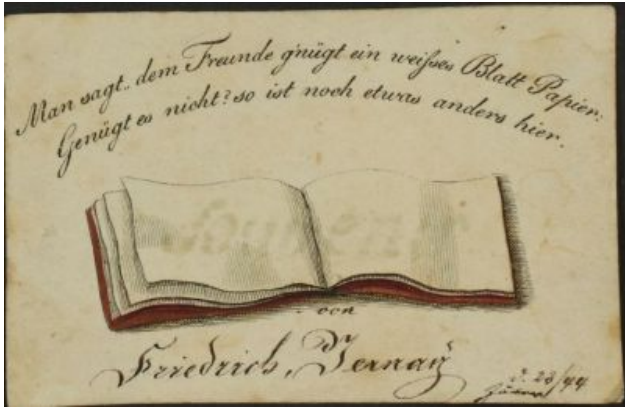 Man sagt, dem Freunde g'nügt ein weißes Blatt Papier:
Genügt es nicht? so ist noch etwas anders hier.
von
Friedrich, Jernaÿ
d. 23/44